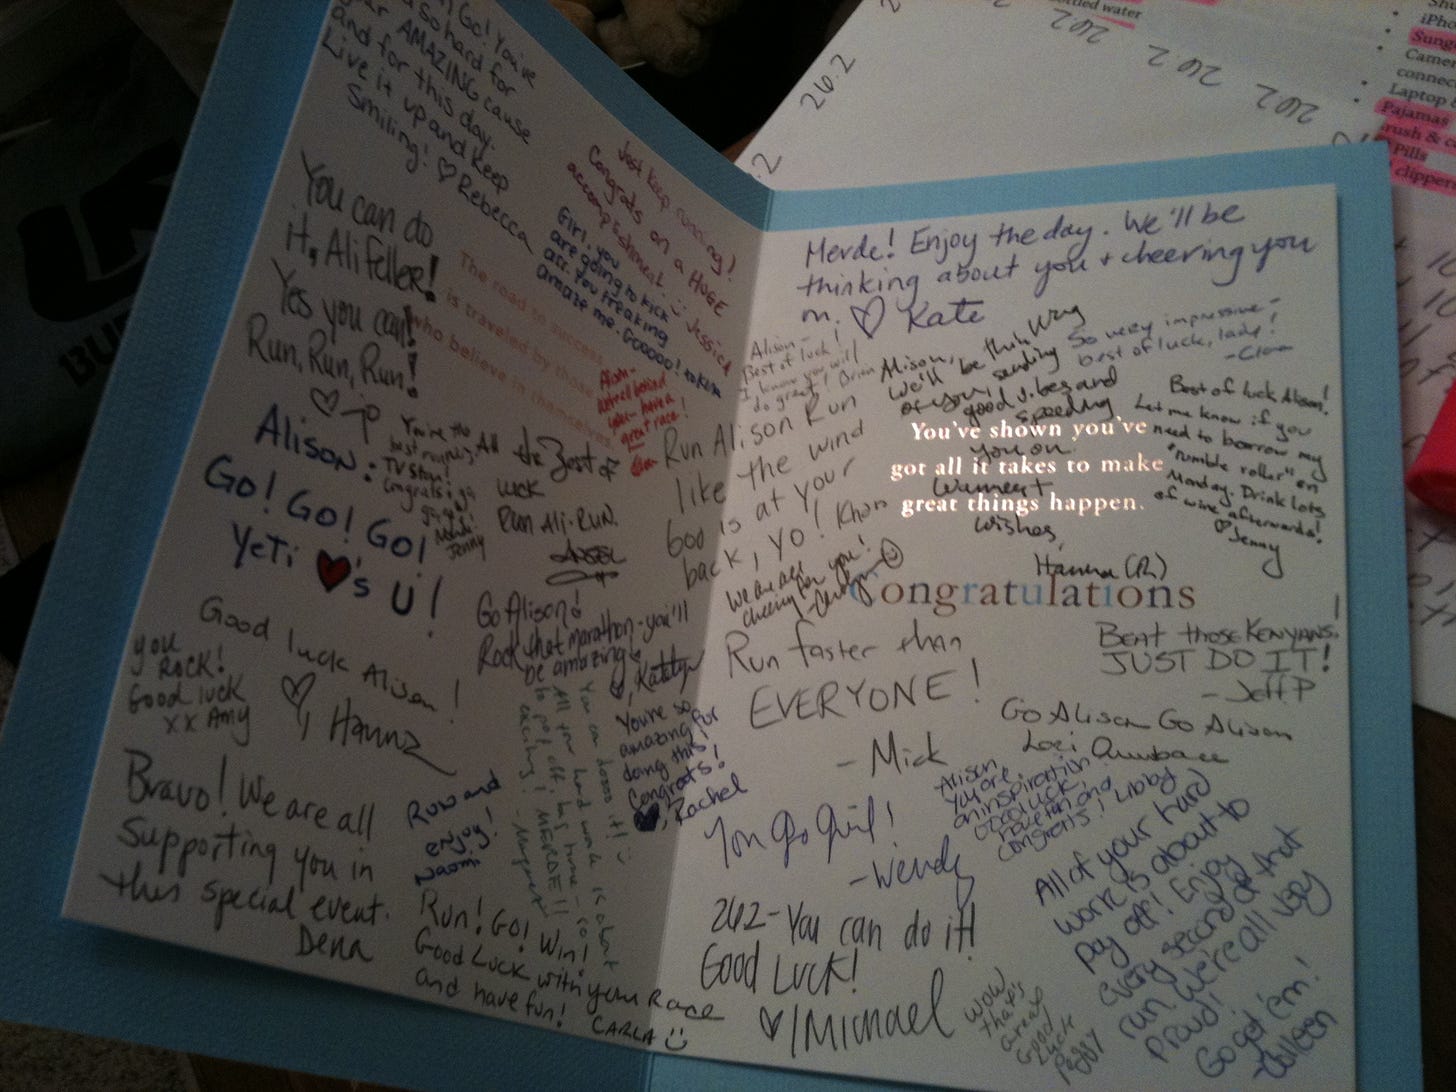 Go! You've
so hard for
your AMAZING cause
and for this day.
Live it up and keep
Smiling! ♡ Rebecca
Just keep running!
Congrats on a HUGE
accomplishment! :) Jessica
Girl, you
are going to kick
ass. You freaking
amaze me. Gooooo!
You can do
it, Ali Feller!
Yes you can!
Run, Run, Run!
♡ JP
The road to success
is traveled by those
who believe in themselves
Alison-
We're all behind
you - have a
great race!
Alison:
Go! Go! Go!
Yeti ♥'s U!
You're the
best running
TV Star!
Congrats
Jenny
All the Best of
luck
Run Ali-Run.
Go Alison!
Rock that marathon - you'll
be amazing!
♡, Katelyn
Good luck Alison!
♡, Hanna
you
ROCK!
Good luck
xx Amy
You can doooo it! :)
All your hard work is about
to pay off, big time - so
exciting! MERDE!!
- Margaret
You're so
amazing for
doing this!
Congrats!
♥, Rachel
Bravo! We are all
supporting you in
this special event.
Dena
Run and
enjoy!
Naomi
Run! Go! Win!
Good Luck with your Race
and have fun! CARLA :)
Merde! Enjoy the day. We'll be
thinking about you + cheering you
on. ♡ Kate
Alison-
Best of luck!
I know you will
do great! Brian
Alison,
We'll be thinking
of you, sending
good vibes and
speeding
you on.
Warmest
wishes,
Hanna (R)
So very impressive-
best of luck, lady!
Best of luck Alison!
Let me know if you
need to borrow my
"rumble roller" on
Monday. Drink lots
of wine afterwards!
♡ Jenny
Run Alison Run
like the wind
600 is at your
back, Yo! Khan
You've shown you've
got all it takes to make
great things happen.
Congratulations
We are all
cheering for you!
- Carolyn
Run faster than
EVERYONE!
- Mick
BEAT THOSE KENYANS.
JUST DO IT!
- Jeff P
Go Alison Go Alison
Lori
You go girl!
- Wendy
Alison
You are
an inspiration
Good luck,
have fun and
congrats! Libby
26.2 - You can do it!
Good Luck!
♡, Michael
All of your hard
work is about to
pay off! Enjoy
every second of that
run. We're all very
proud!
Go get 'em!
- Colleen
Wow
that's
great
Good
Luck
Peggy
26.2
26.2
26.2
26.2
26.2
bottled water
Camera
connect
Laptop
Pajamas
Pills
clippers